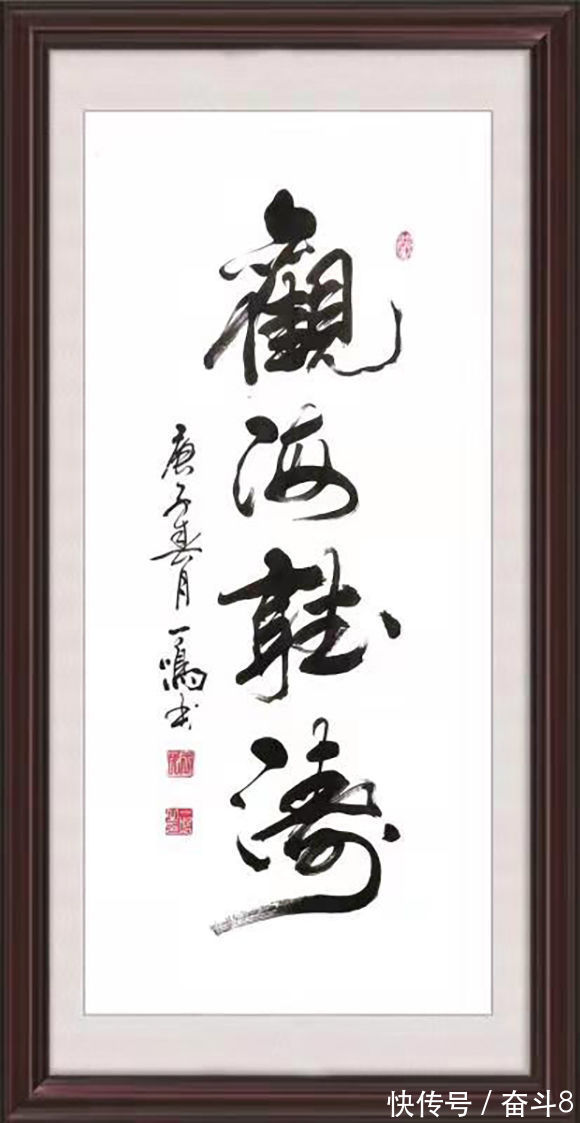 觀海聽濤
庚子春月一鳴书
快传号 / 奋斗8